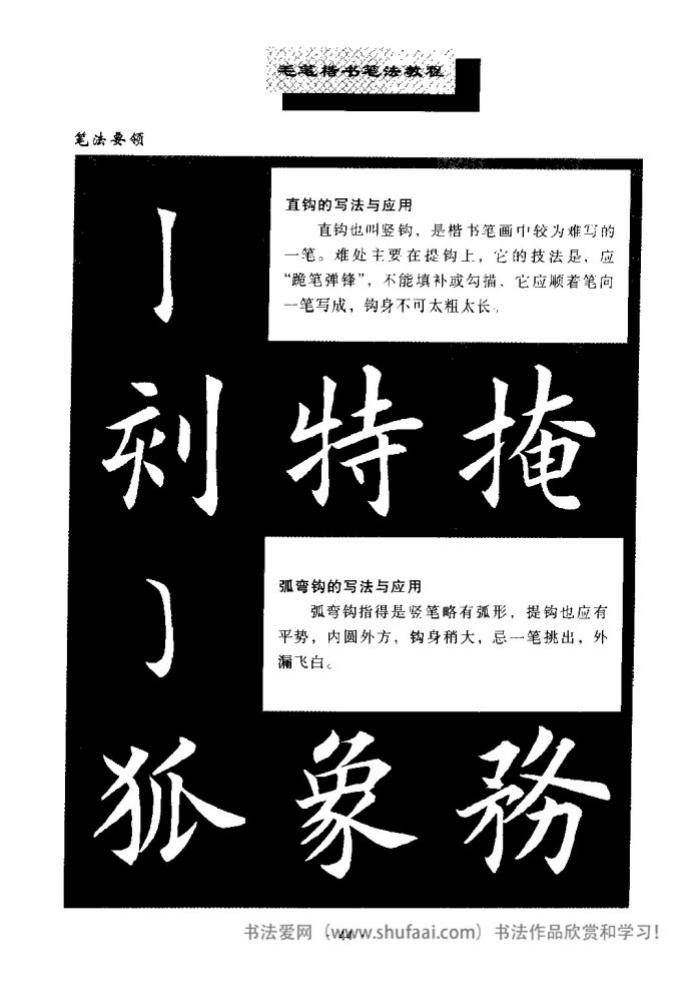 毛笔楷书笔法教程
笔法要领
亅
直钩的写法与应用
直钩也叫竖钩，是楷书笔画中较为难写的
一笔。难处主要在提钩上，它的技法是，应
“跪笔弹锋”，不能填补或勾描、它应顺着笔向
一笔写成，钩身不可太粗太长。
刻 特 掩
弧弯钩的写法与应用
弧弯钩指得是竖笔略有弧形，提钩也应有
平势，内圆外方，钩身稍大，忌一笔挑出，外
漏飞白。
狐 象 務
44
书法爱网（www.shufaai.com）书法作品欣赏和学习！